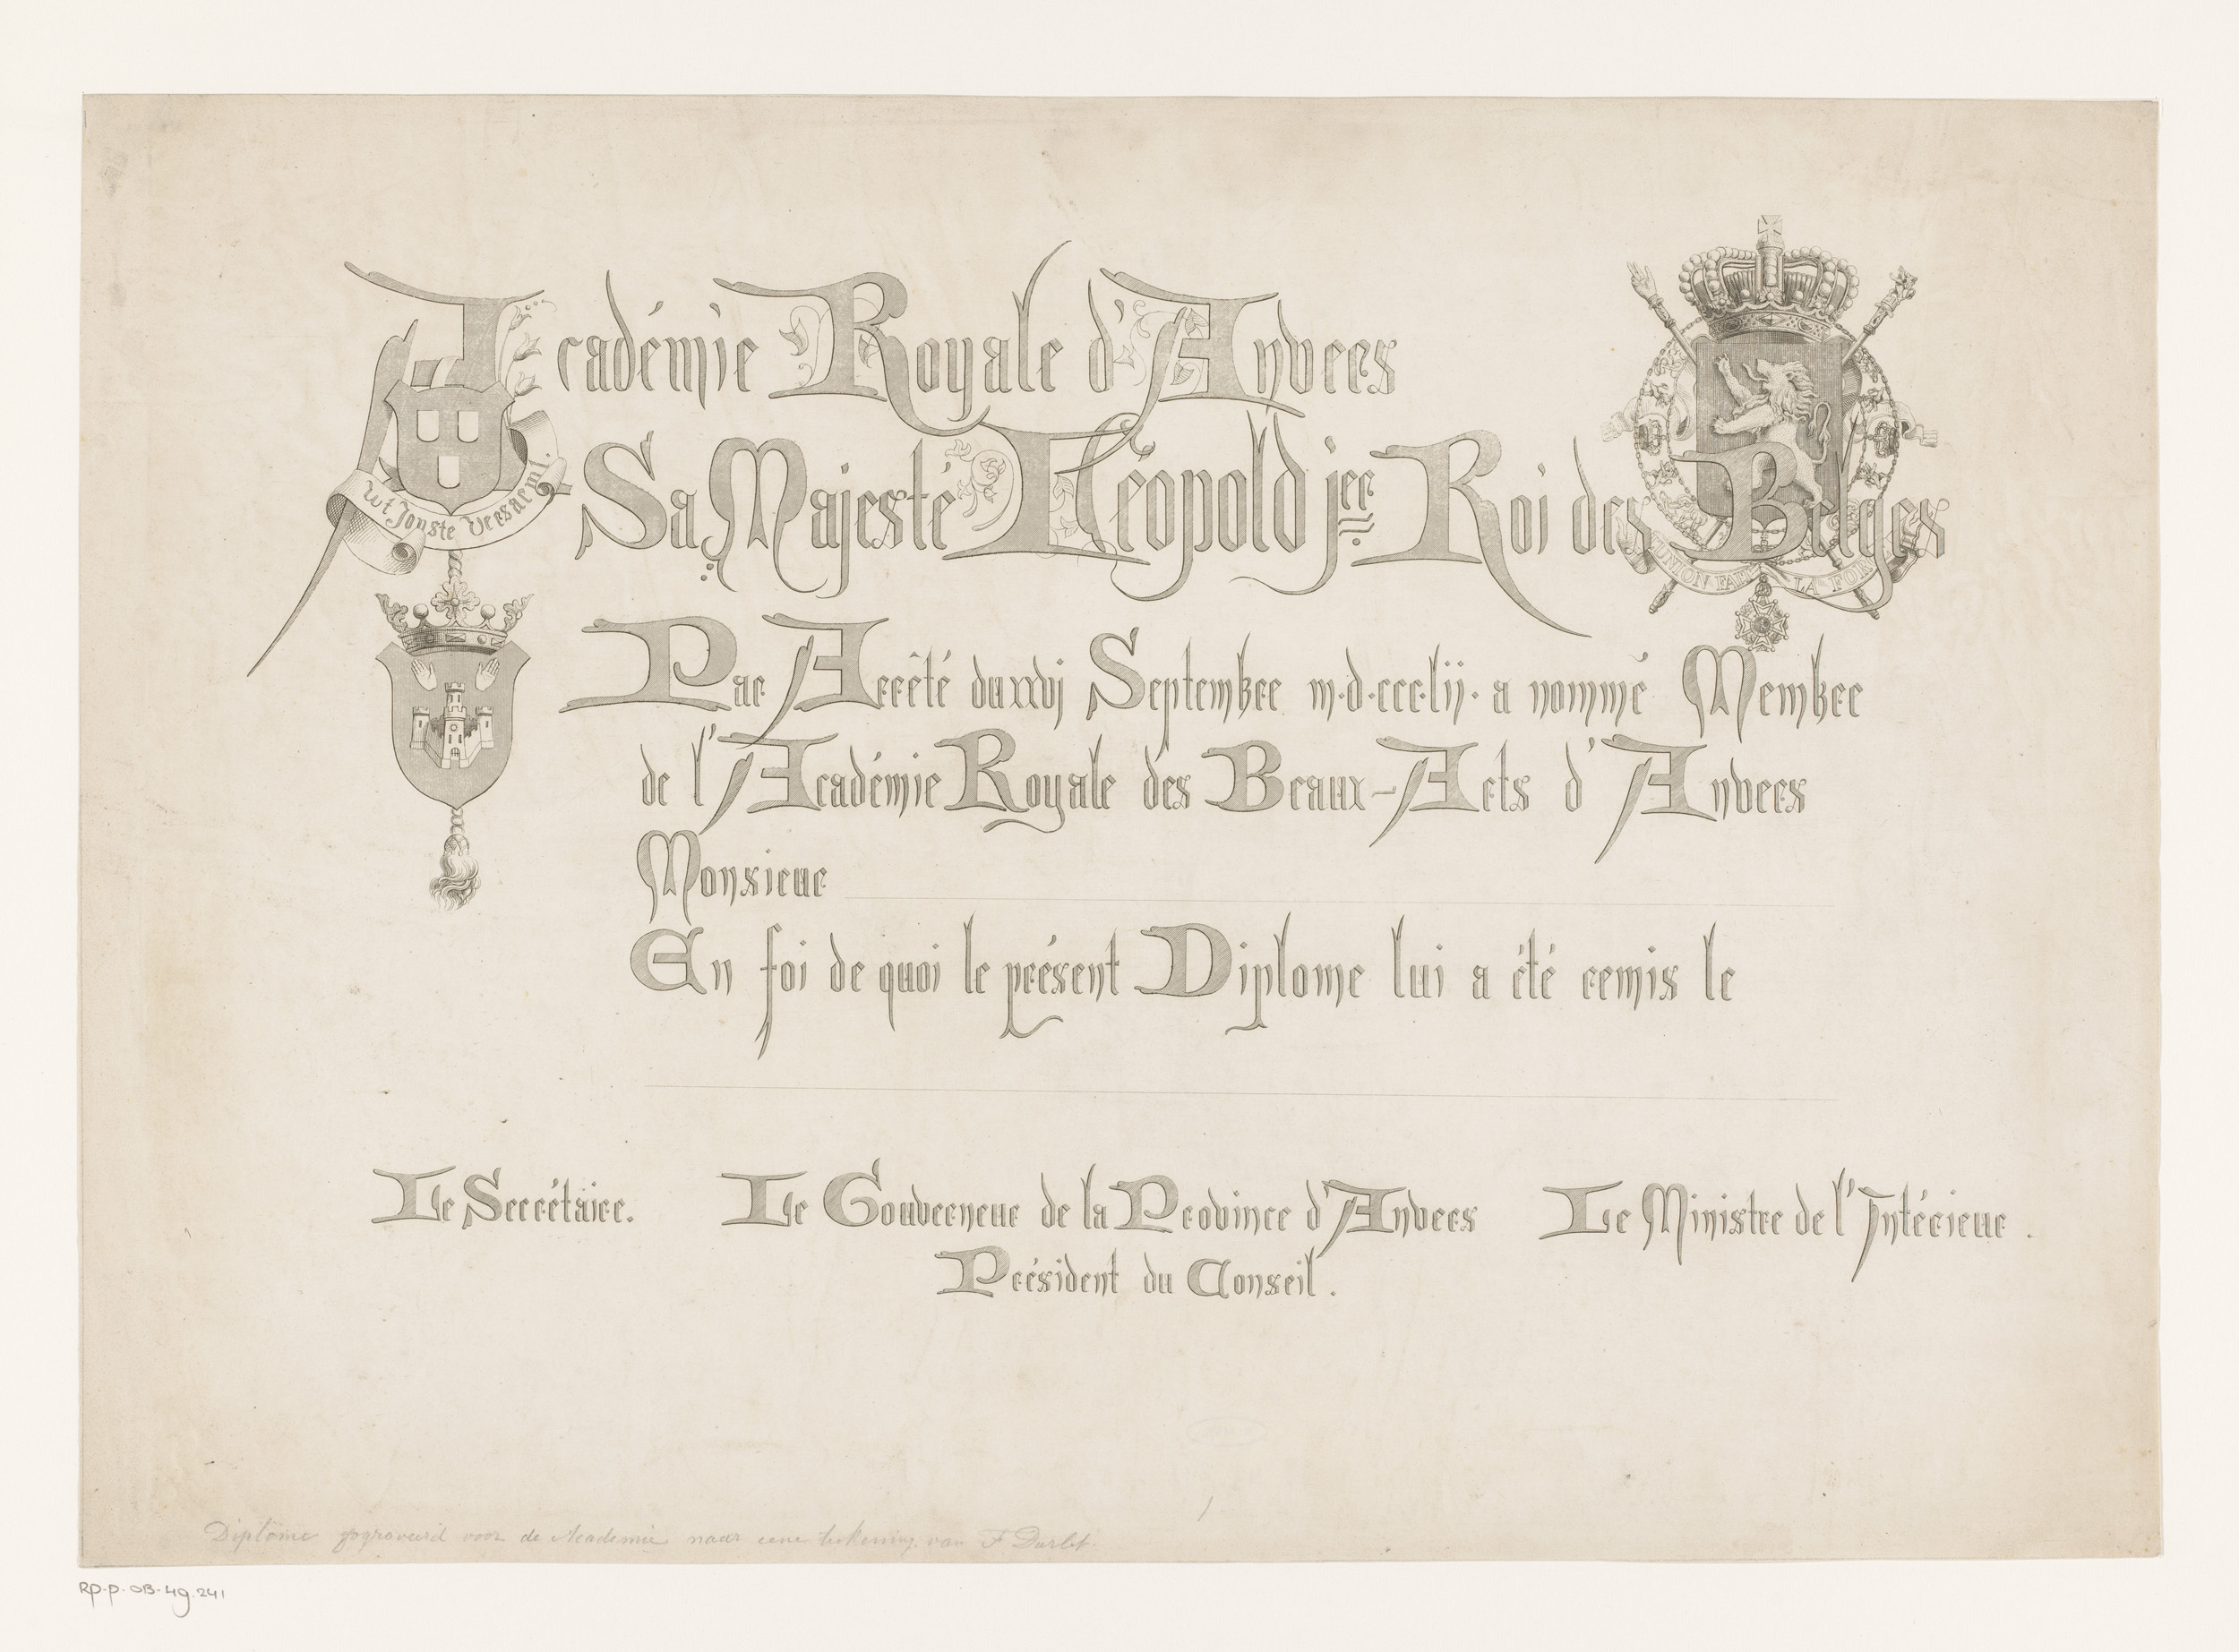 Académie Royale d'Anvers
Wt Jonste Versaemt.
Sa Majesté Léopold jer Roi des Belges
L'UNION FAIT LA FORCE
Par Arrêté du xxvj Septembre m·d·ccc·lij· a nommé Membre
de l'Académie Royale des Beaux-Arts d'Anvers
Monsieur
En foi de quoi le présent Diplome lui a été remis le
Le Secrétaire. Le Gouverneur de la Province d'Anvers Le Ministre de l'Intérieur.
Président du Conseil.
Diplôme gegraveerd voor de Academie naar eene tekening van F Durlet.
RP-P-OB-49.241